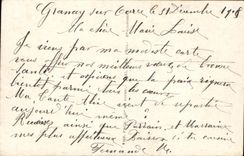 Grancey sur Ource le 31 Décembre 1918
Ma chère Marie Louise
Je viens par ma modeste carte
vous offrir nos meilleurs vœux de bonne
santé et espérons que la paix régnera
bientôt parmi tous les cœurs
Ma tante Alice vient de repartir
aujourd'hui même
Recevez ainsi que Parrain et Marraine
mes plus affectueux baisers de ta cousine
Fernande